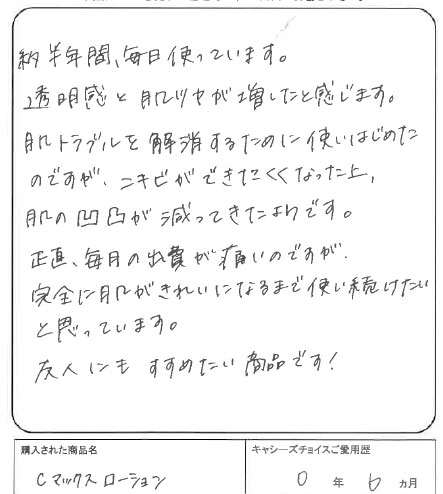 約半年間、毎日使っています。
透明感と肌ツヤが増したと感じます。
肌トラブルを解消するために使いはじめた
のですが、ニキビができにくくなった上、
肌の凹凸が減ってきたようです。
正直、毎月の出費が痛いのですが、
完全に肌がきれいになるまで使い続けたい
と思っています。
友人にもすすめたい商品です！
購入された商品名
キャシーズチョイスご愛用歴
Cマックスローション
0 年 6 カ月